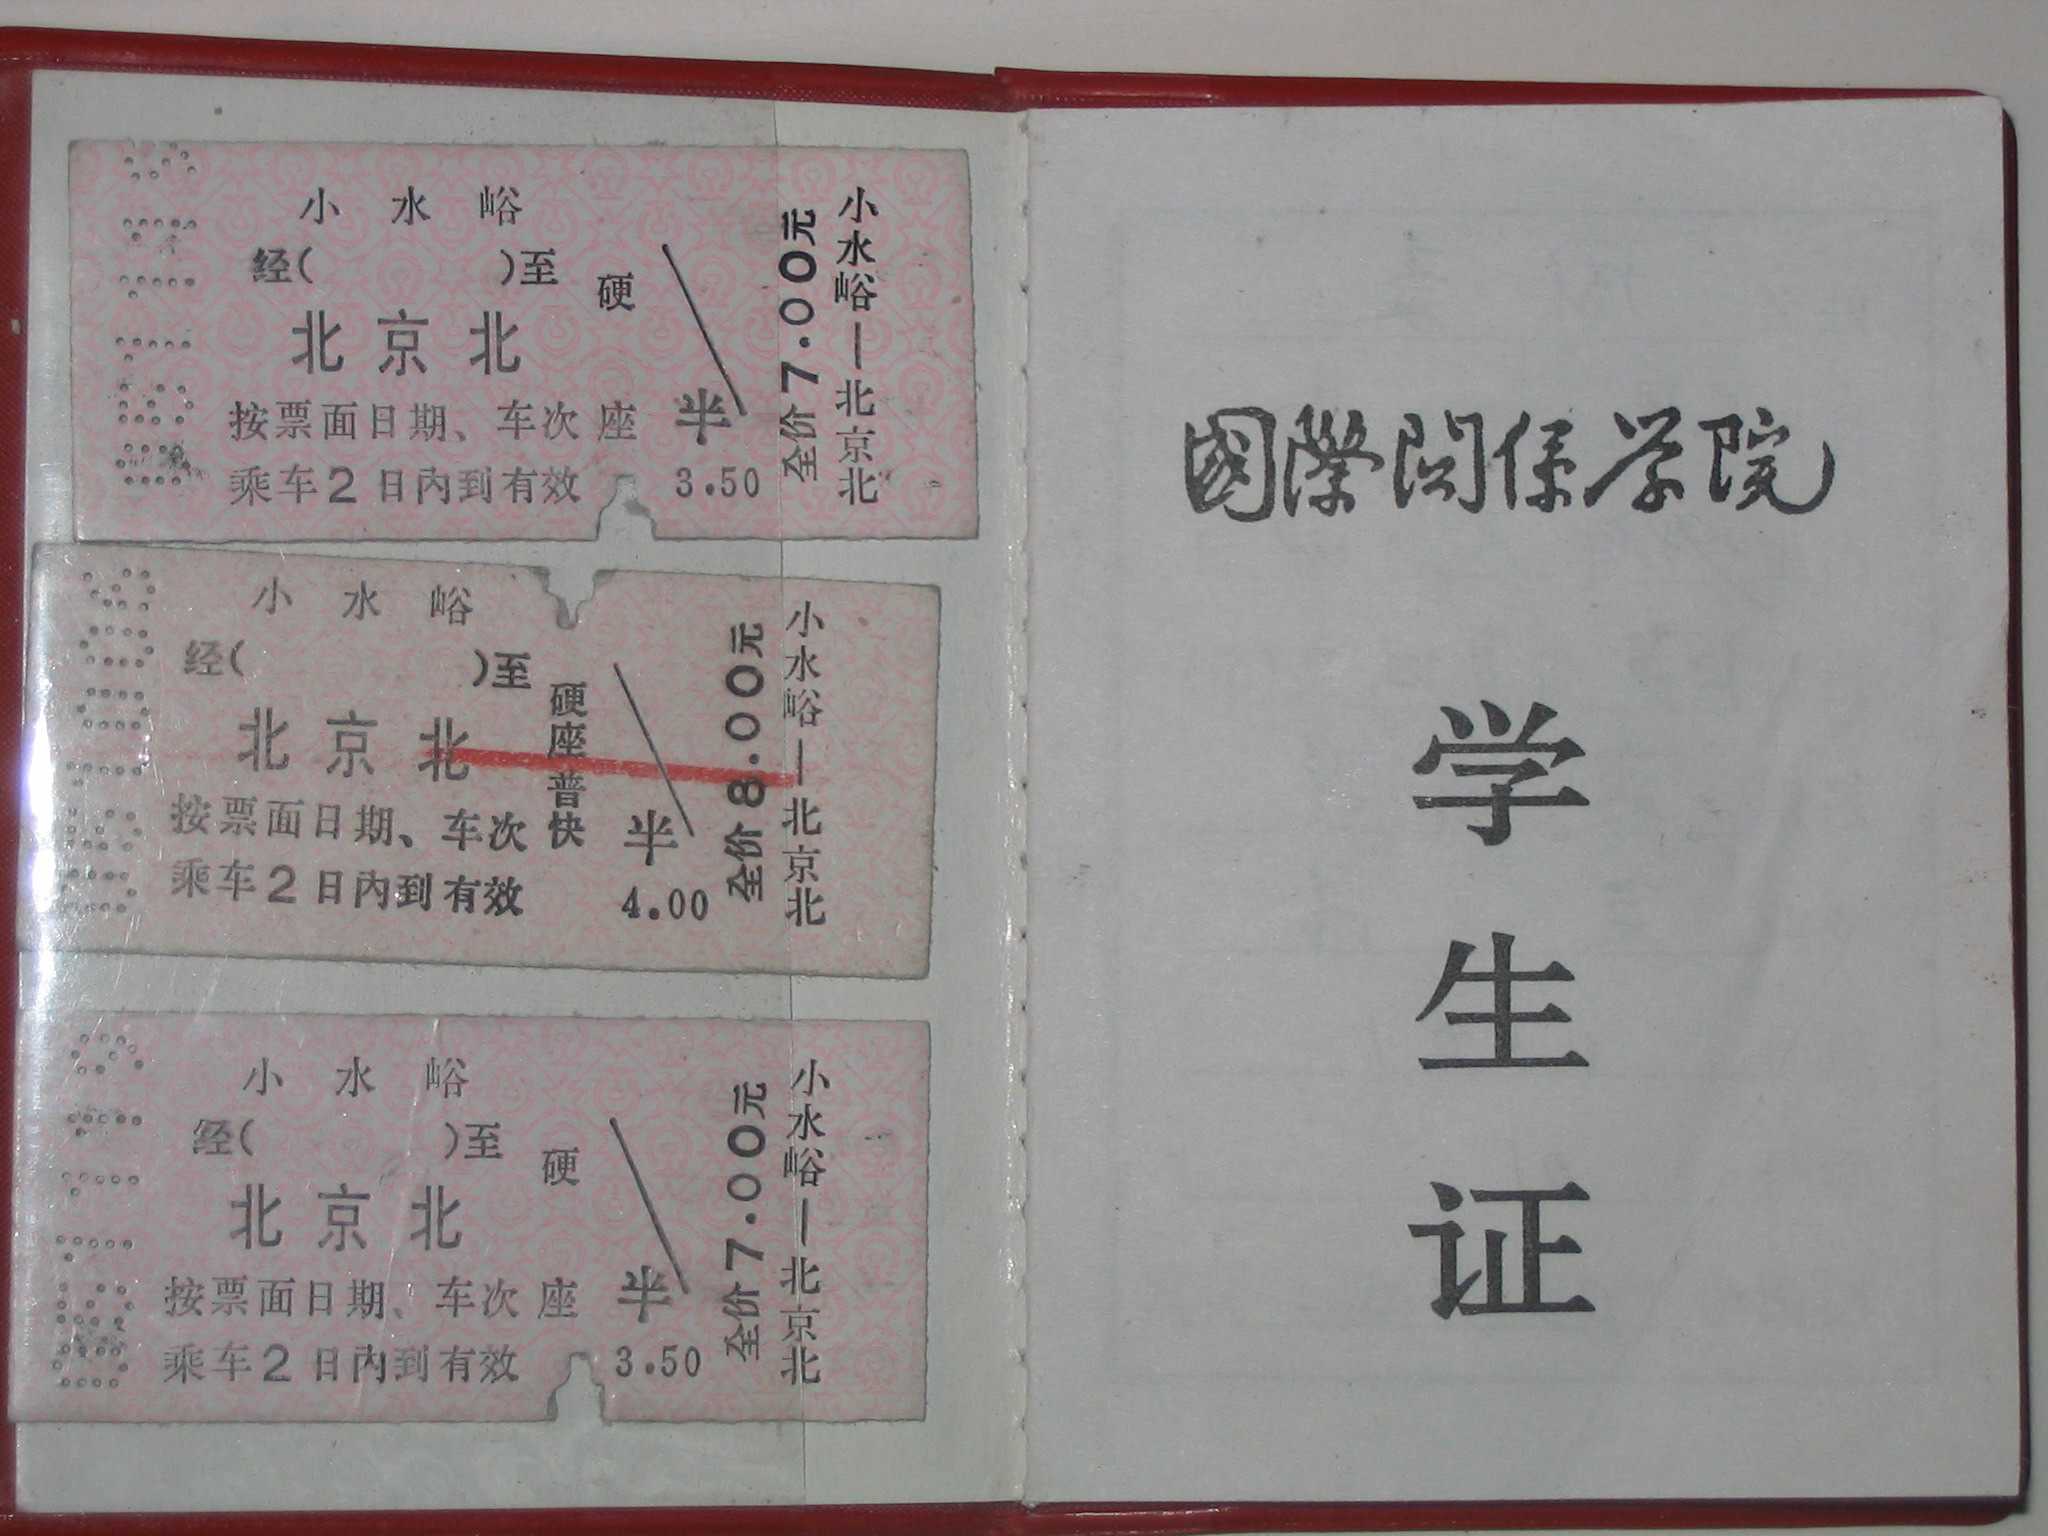 小水峪
经( )至 硬
北京北
按票面日期、车次 座 半
乘车2日内到有效 3.50
全价7.00元
小水峪—北京北
小水峪
经( )至
北京北
硬座普快
按票面日期、车次 半
乘车2日内到有效 4.00
全价8.00元
小水峪—北京北
小水峪
经( )至 硬
北京北
按票面日期、车次 座 半
乘车2日内到有效 3.50
全价7.00元
小水峪—北京北
國際関係学院
学
生
证